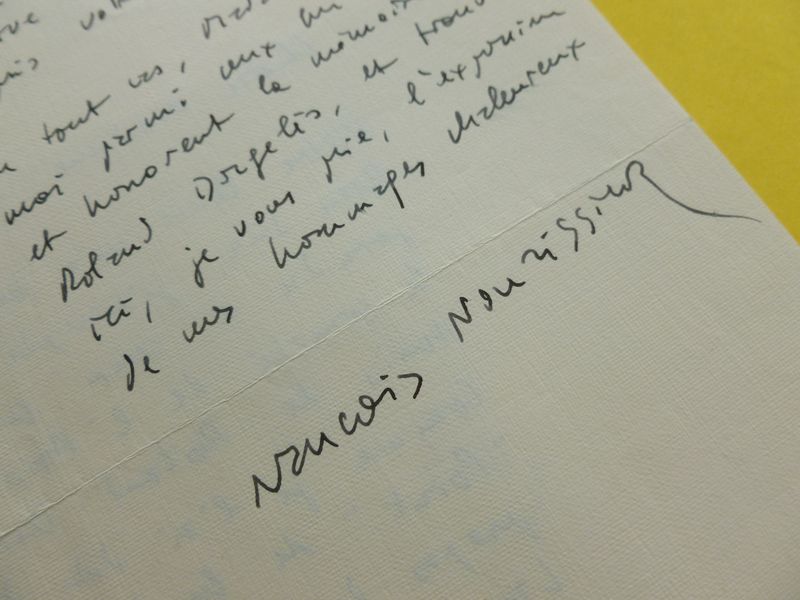 tout cas,
moi parmi ceux qui
et honorent la mémoire
Roland Dorgelès, et trouv
ici, je vous prie, l'expression
de mes hommages chaleureux
François Nourissier